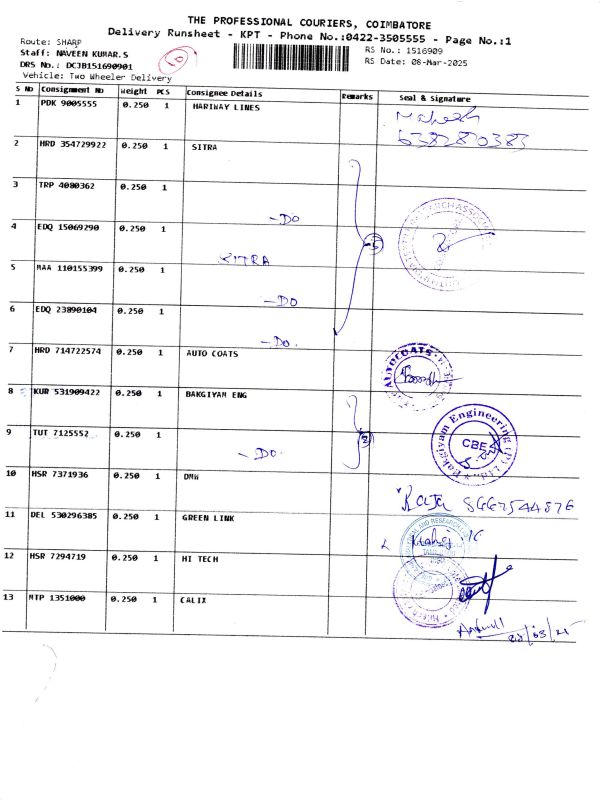 THE PROFESSIONAL COURIERS, COIMBATORE
Delivery Runsheet - KPT - Phone No.:0422-3505555 - Page No.:1
Route: SHARP
Staff: NAVEEN KUMAR.S
DRS No.: DCJB151690901
Vehicle: Two Wheeler Delivery
RS No.: 1516909
RS Date: 08-Mar-2025
S No Consignment No Weight PCS Consignee Details Remarks Seal & Signature
1 PDK 9005555 0.250 1 HARIWAY LINES Mahesh
6382820383
2 HRD 354729922 0.250 1 SITRA
3 TRP 4080362 0.250 1 -DO
4 EDQ 15069290 0.250 1 SITRA 5
5 MAA 110155399 0.250 1 -DO
6 EDQ 23890104 0.250 1 -DO.
7 HRD 714722574 0.250 1 AUTO COATS AUTOCOATS
8 KUR 531909422 0.250 1 BAKGIYAM ENG Bakgiyam Engineering (P) Ltd.
CBE
9 TUT 7125552 0.250 1 -DO. 2
10 HSR 7371936 0.250 1 DMW Raja 8667544876
11 DEL 530296385 0.250 1 GREEN LINK
12 HSR 7294719 0.250 1 HI TECH
13 MTP 1351000 0.250 1 CALIX